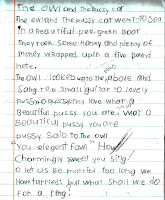 The owl and The Pussy cat
The owl and The pussy cat went To Sea
in a Beautiful pea green Boat
They took some honey and plenty of
money wrapped up in a five pound
note.
The owl looked up to the above and
Sang To a Small guitar o lovely
pussy o pussy my love what a
Beautiful pussy you are, what a
Beautiful pussy you are
pussy said to the owl
You elegant fowl How
Charmingly sweet you sing
o let us be married too long we
How tarried but what shall we do
for a ring!